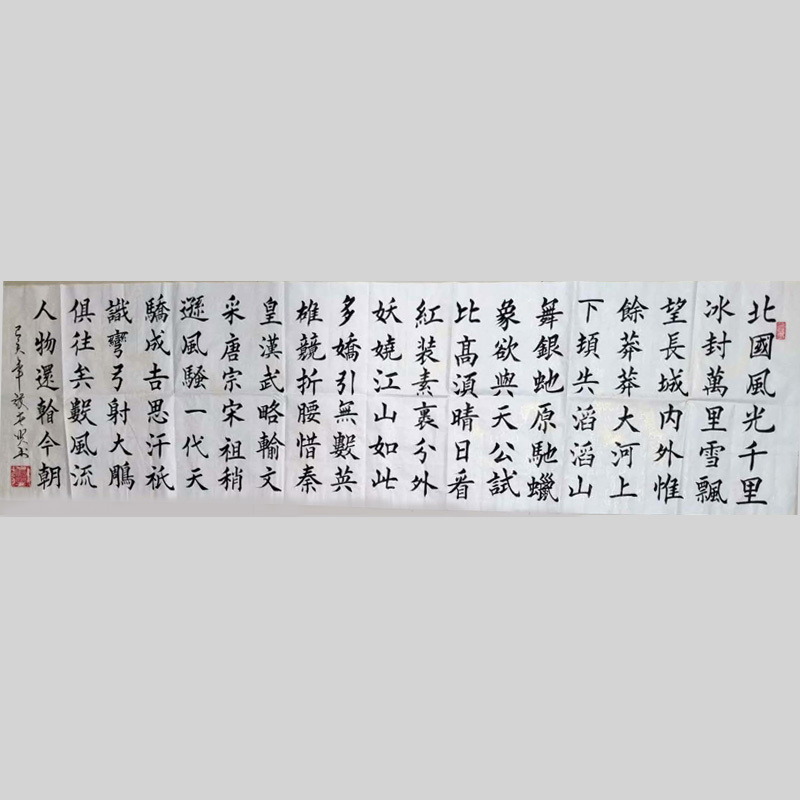 北國風光千里
冰封萬里雪飄
望長城内外惟
餘莽莽大河上
下頓失滔滔山
舞銀虵原馳蠟
象欲與天公試
比高須晴日看
紅装素裹分外
妖嬈江山如此
多嬌引無數英
雄競折腰惜秦
皇漢武略輸文
采唐宗宋祖稍
遜風騷一代天
驕成吉思汗祇
識彎弓射大鵰
俱往矣數風流
人物還看今朝
己亥年